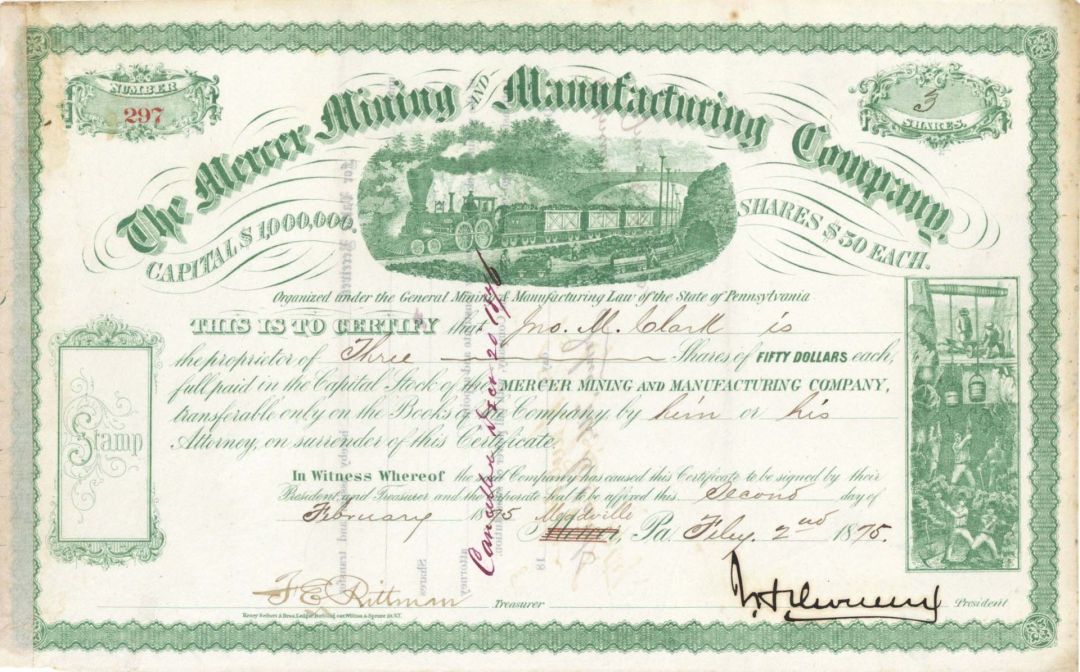 NUMBER
297
3
SHARES.
The Mercer Mining AND Manufacturing Company,
CAPITAL $1,000,000.
SHARES $50 EACH.
Organized under the General Mining & Manufacturing Law of the State of Pennsylvania
THIS IS TO CERTIFY that Jno. M. Clark is
the proprietor of Three Shares of FIFTY DOLLARS each,
full paid in the Capital Stock of the MERCER MINING AND MANUFACTURING COMPANY,
transferable only on the Books of the Company by him or his
Attorney, on surrender of this Certificate.
Stamp
In Witness Whereof the said Company has caused this Certificate to be signed by their
President and Treasurer and the Corporate Seal to be affixed this Second day of
February 1875 Meadville, Pa Feby. 2nd 1875.
Cancelled Decr 20 1876
F. E. Rittman Treasurer
President